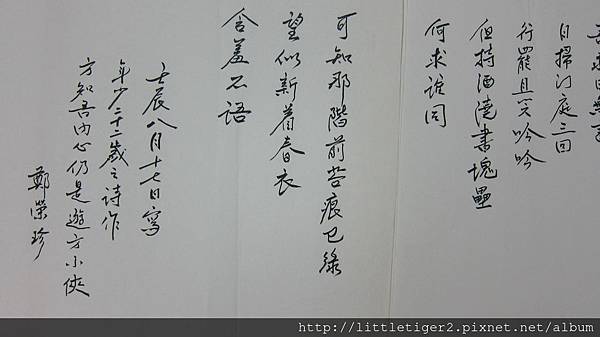 日掃門庭三回
行罷且笑吟吟
但持酒澆書塊壘
何求誰同
可知那階前苔痕已綠
望似新着春衣
含羞不語
壬辰八月十七日寫
年少二十二歲之詩作
方知吾內心仍是遊方小俠
鄭榮珍
http://littletiger2.pixnet.net/album